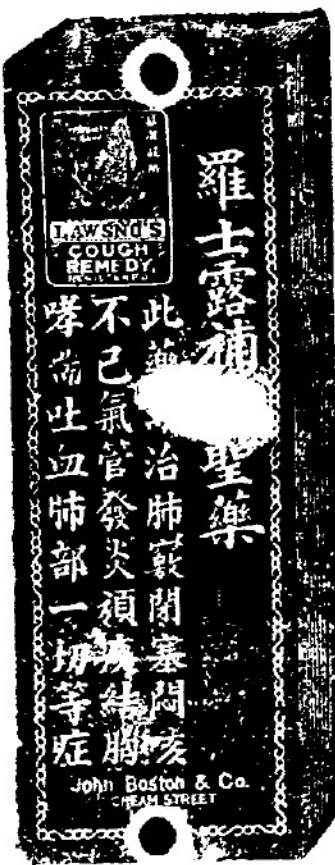 羅士露補聖藥
LAWSNO'S
COUGH
REMEDY
此藥治肺嗽閉塞悶咳
不已氣管發炎頑痰結胸
哮喘吐血肺部一切等症
John Boston & Co.
CHEAM STREET